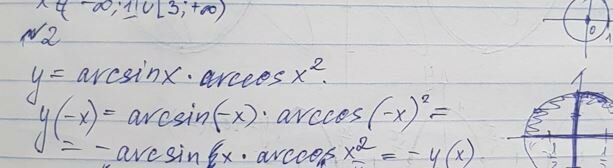 x ∈ -∞; 1] ∪ [3; +∞)
№2
y = arcsinx · arccos x².
y(-x) = arcsin(-x) · arccos (-x)² =
= -arcsin x · arccos x² = -y(x)
0